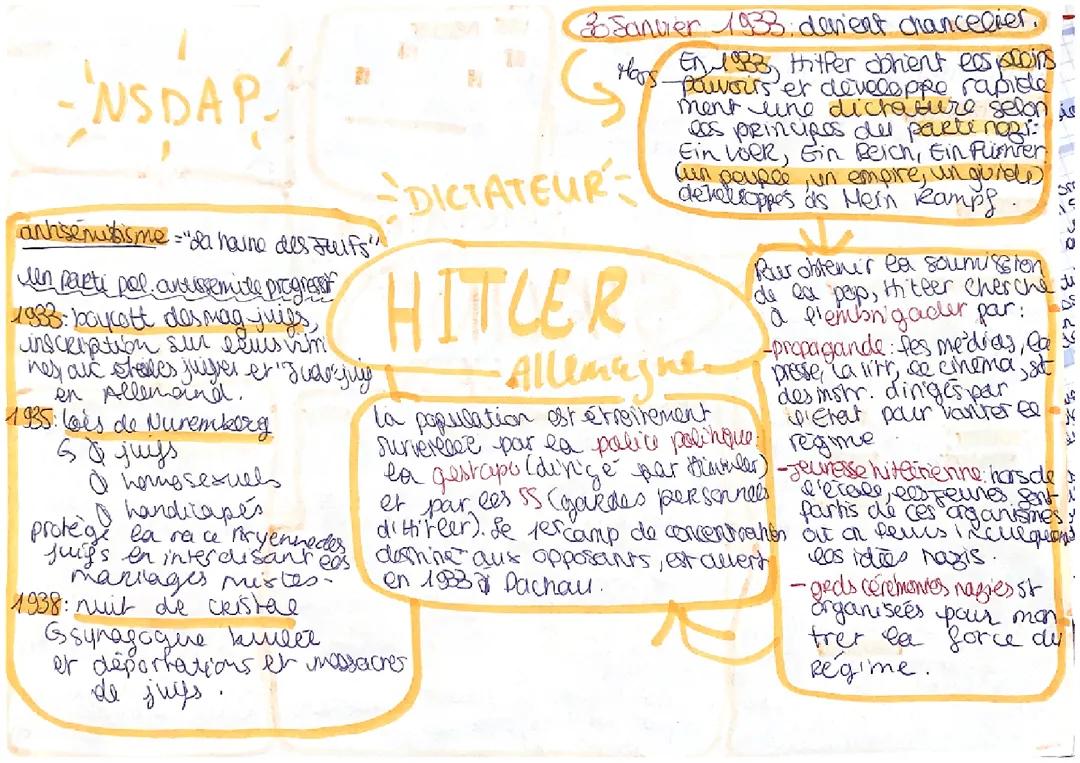 30 Janvier 1933: devient chancelier.
NSDAP
En 1933, Hitler obtient les pleins
pouvoirs et développe rapide
ment une dictature selon
les principes du parti nazi:
Ein Volk, Ein Reich, Ein Führer
(un peuple, un empire, un guide)
développés ds Mein Kampf.
DICTATEUR
HITLER
Allemagne
antisémitisme = "la haine des Juifs"
un parti pol. antisémite progressif
1933: boycott des mag juifs,
inscription sur leurs vitri
nes, aux étoiles juives et "Juda" juif
en Allemand.
1935: lois de Nuremberg
juifs
homosexuels
handicapés
protège la race Aryenne des
juifs en interdisant les
mariages mixtes.
1938: nuit de cristal
synagogue brulée
et déportations et massacres
de juifs.
La population est étroitement
surveillé par la police politique:
la gestapo (dirigé par Himmler)
et par les SS (gardes personnels
d'Hitler). Le 1er camp de concentration
destiné aux opposants, est ouvert
en 1933 à Dachau.
Pour obtenir la soumission
de la pop, Hitler cherche
à l'embrigader par:
-propagande: les médias, la
presse, la litt, le cinéma, st
des instr. dirigés par
l'Etat pour vanter le
régime
-jeunesse hitlérienne: hors de
l'école, les jeunes font
partis de ces organismes
où on leurs inculquent
les idées nazis.
-grds cérémonies nazies st
organisées pour mon
trer la force du
régime.